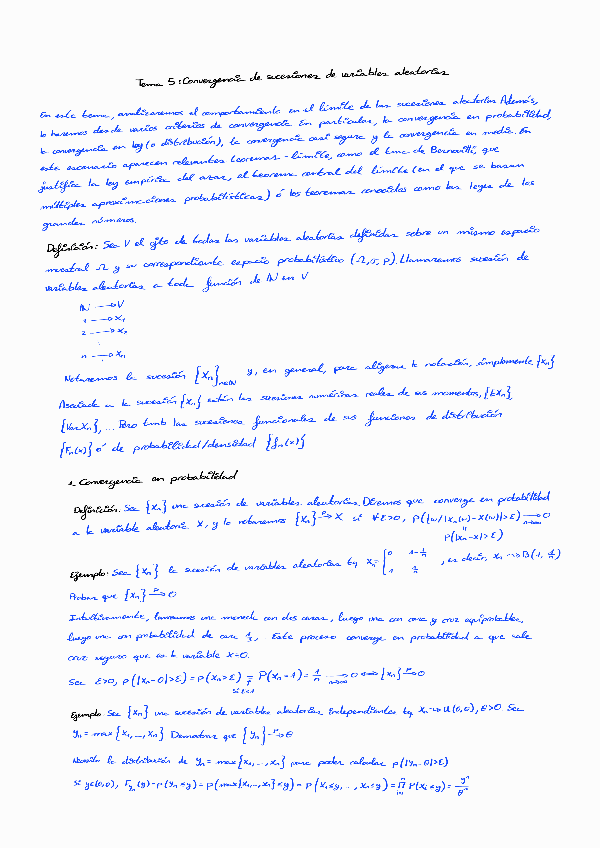 Tema 5: Convergencia de sucesiones de variables aleatorias
En este tema, analizaremos el comportamiento en el límite de las sucesiones aleatorias. Además,
lo haremos desde varios criterios de convergencia. En particular, la convergencia en probabilidad,
la convergencia en ley (o distribución), la convergencia casi segura y la convergencia en media. En
este escenario aparecen relevantes teoremas-límite, como el tma. de Bernoulli, que
justifica la ley empírica del azar, el teorema central del límite (en el que se basan
múltiples aproximaciones probabilísticas) ó los teoremas conocidos como las leyes de los
grandes números.
Definición: Sea V el cjto de todas las variables aleatorias definidas sobre un mismo espacio
muestral Ω y su correspondiente espacio probabilístico (Ω, σ, P). Llamaremos sucesión de
variables aleatorias a toda función de ℕ en V
ℕ → V
1 → X₁
2 → X₂
⋮
n → Xₙ
Notaremos la sucesión {Xₙ}ₙ∈ℕ y, en general, para aligerar la notación, simplemente {Xₙ}
Asociada a la sucesión {Xₙ} están las sucesiones numéricas reales de sus momentos, {EXₙ},
{Var Xₙ}, ... Pero también las sucesiones funcionales de sus funciones de distribución
{Fₙ(x)} ó de probabilidad/densidad {fₙ(x)}
1. Convergencia en probabilidad
Definición. Sea {Xₙ} una sucesión de variables aleatorias. Diremos que converge en probabilidad
a la variable aleatoria X, y lo notaremos {Xₙ} →ᴾ X si ∀ε>0, P(|w/|Xₙ(w)-X(w)|>ε) → 0
n→∞
P(|Xₙ-X|>ε)
Ejemplo. Sea {Xₙ} la sucesión de variables aleatorias tq Xₙ = { 0 1-1/n , es decir, Xₙ ~> B(1, 1/n)
1 1/n
Probar que {Xₙ} →ᴾ 0
Intuitivamente, lanzamos una moneda con dos caras, luego una con cara y cruz equiprobables,
luego una con probabilidad de cara 1/3, Este proceso converge en probabilidad a que sale
cruz seguro que es la variable X=0.
Sea ε>0, P(|Xₙ-0|>ε) = P(Xₙ>ε) = P(Xₙ=1) = 1/n → 0 ⟺ {Xₙ} →ᴾ 0
si ε<1 n→∞
Ejemplo Sea {Xₙ} una sucesión de variables aleatorias independientes tq Xₙ ~> U(0,θ), θ>0. Sea
Yₙ = max{X₁,...,Xₙ} Demostrar que {Yₙ} →ᴾ θ
Necesito la distribución de Yₙ = max{X₁,...,Xₙ} para poder calcular P(|Yₙ-θ|>ε)
Si y∈(0,θ), F_Yₙ(y) = P(Yₙ≤y) = P(max{X₁,...,Xₙ}≤y) = P(X₁≤y, ..., Xₙ≤y) = ∏ⁿᵢ₌₁ P(Xᵢ≤y) = yⁿ/θⁿ